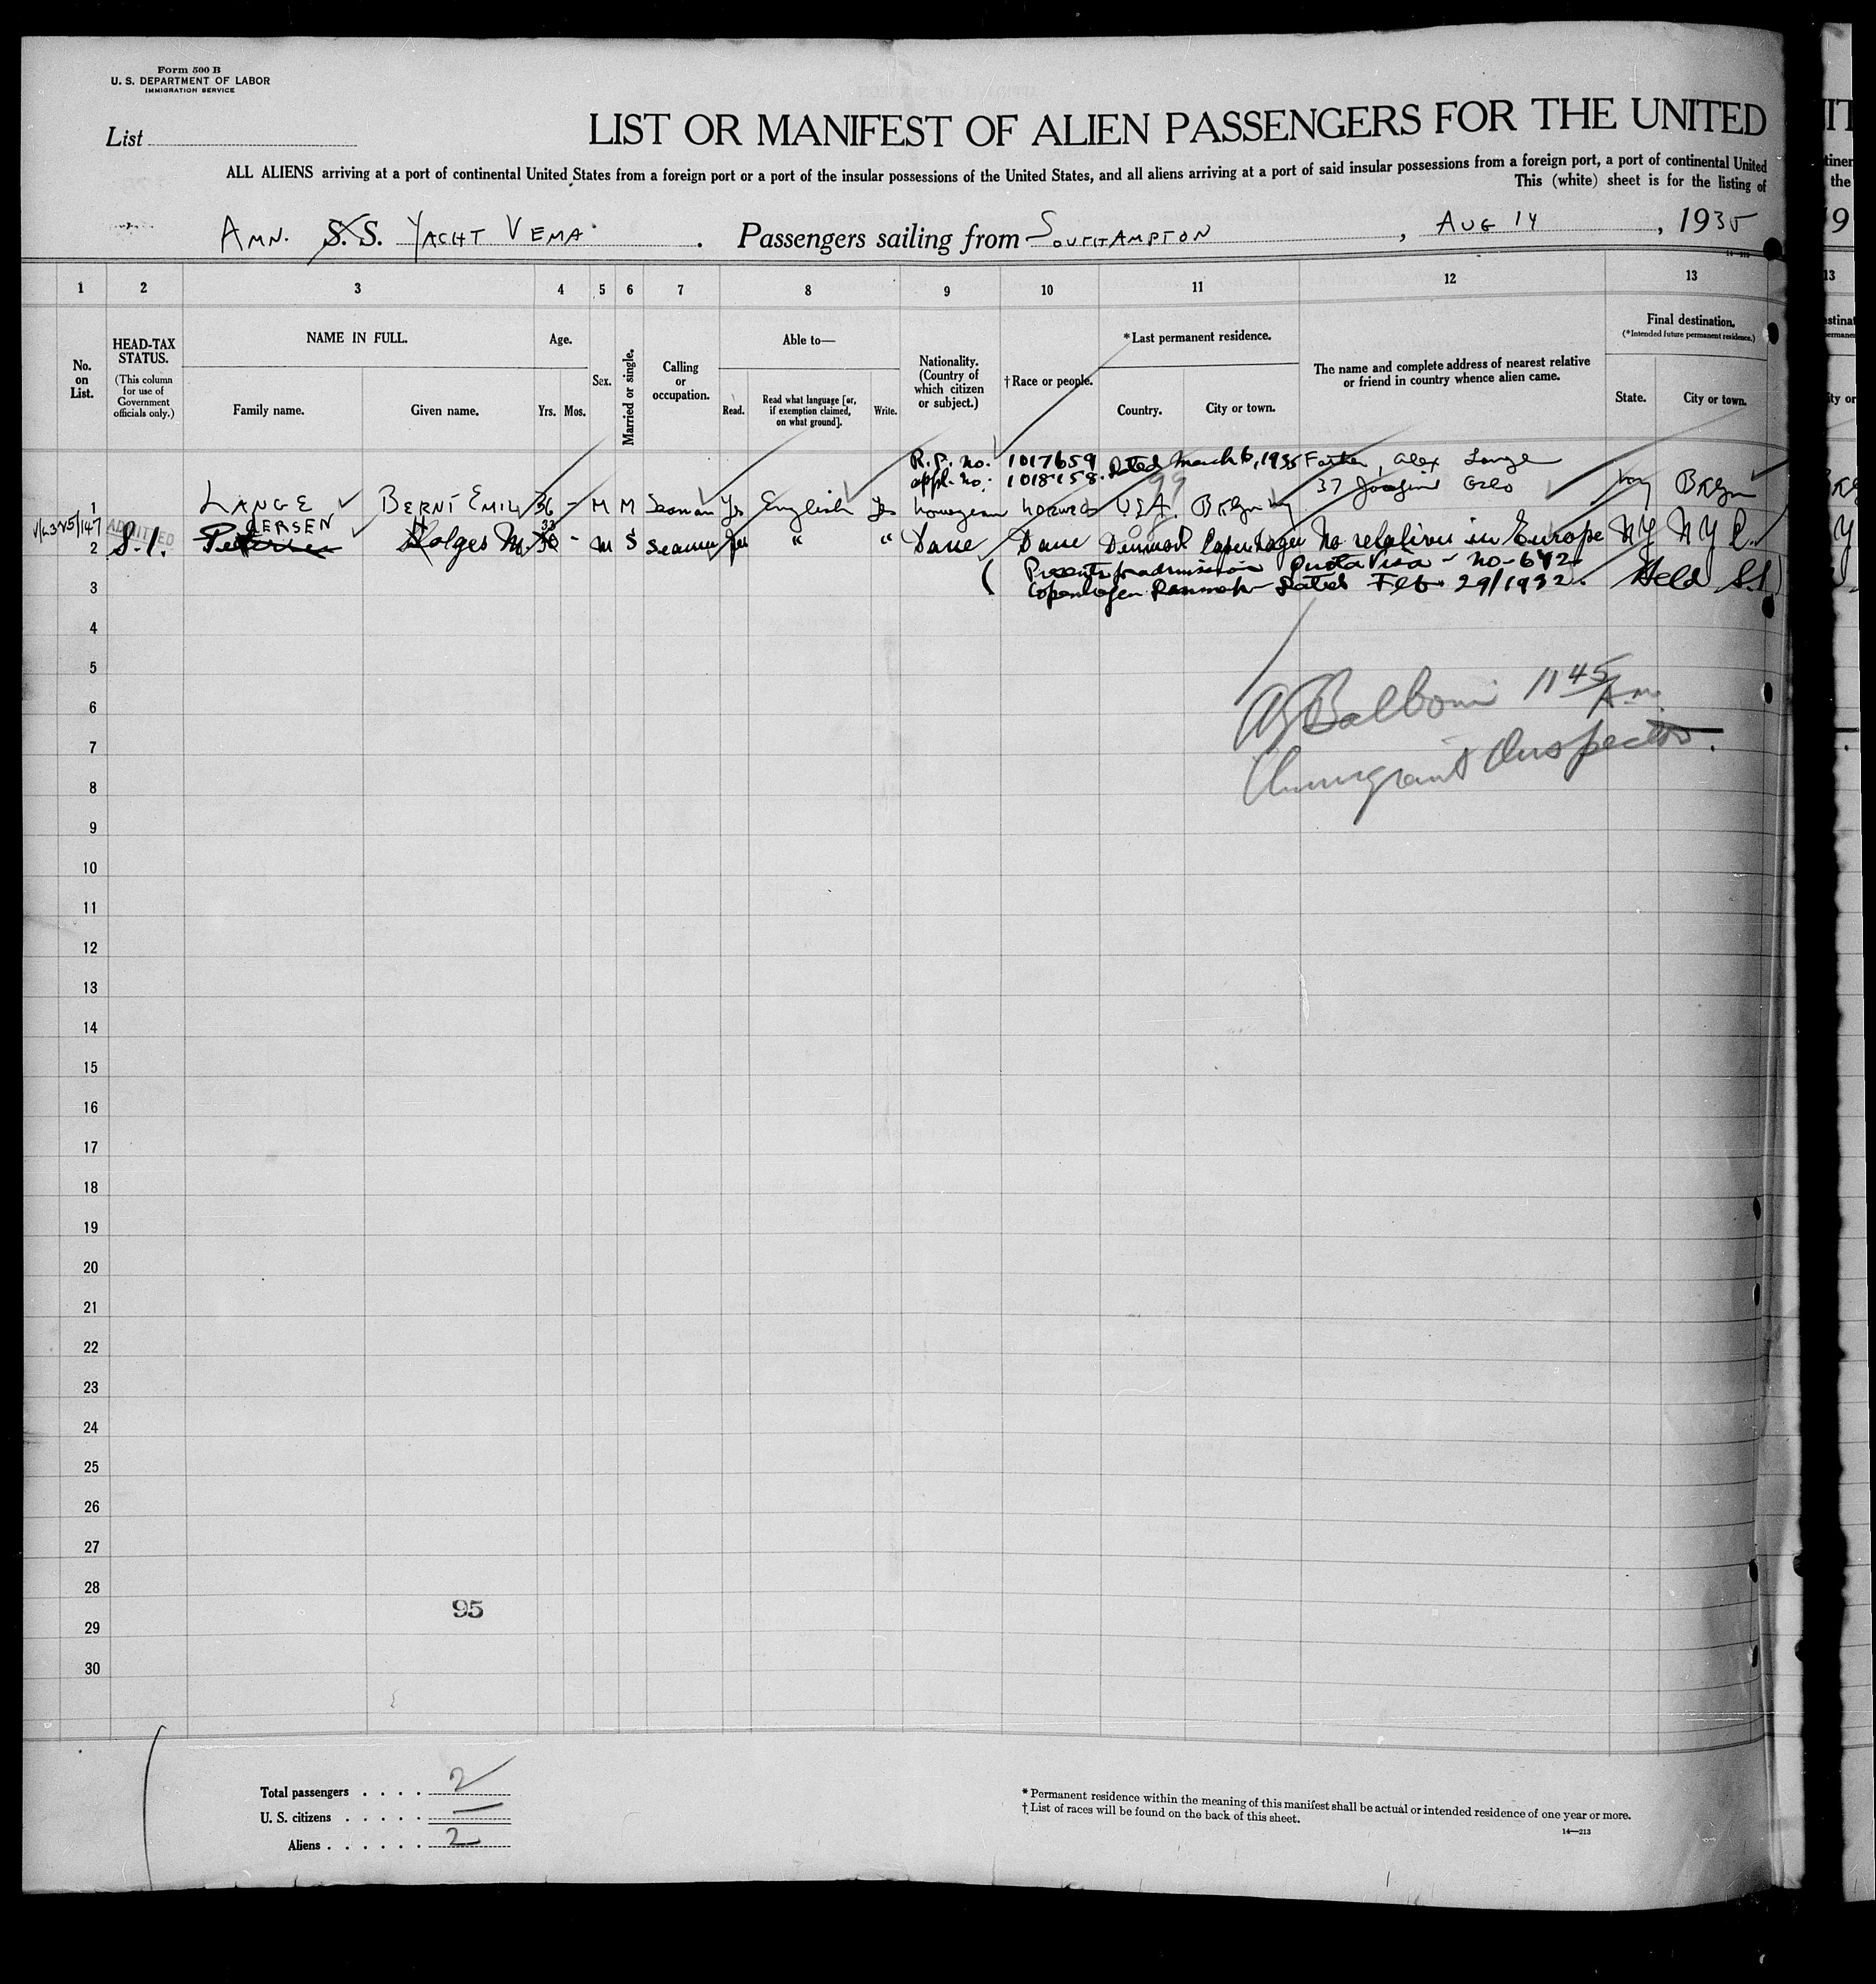 Form 500 B
U. S. DEPARTMENT OF LABOR
IMMIGRATION SERVICE
List
LIST OR MANIFEST OF ALIEN PASSENGERS FOR THE UNITED
ALL ALIENS arriving at a port of continental United States from a foreign port or a port of the insular possessions of the United States, and all aliens arriving at a port of said insular possessions from a foreign port, a port of continental United
This (white) sheet is for the listing of
AMN. S.S. YACHT VEMA. Passengers sailing from SOUTHAMPTON, AUG 14, 1935
1 2 3 4 5 6 7 8 9 10 11 12 13
No. on List.
HEAD-TAX STATUS.
(This column for use of Government officials only.)
NAME IN FULL.
Family name. Given name.
Age.
Yrs. Mos.
Sex.
Married or single.
Calling or occupation.
Able to—
Read. Read what language [or, if exemption claimed, on what ground]. Write.
Nationality. (Country of which citizen or subject.)
†Race or people.
*Last permanent residence.
Country. City or town.
The name and complete address of nearest relative or friend in country whence alien came.
Final destination.
(*Intended future permanent residence.)
State. City or town.
R.P. no. 1017659 Dated March 6, 1935 Father, Alex Lange
appl. no. 1018158. 37 Oslo
1 LANGE BERNT EMIL 36 - M M Seaman Yes English Yes Norwegian U.S.A. Bklyn ny Bklyn
GERSEN
ADMITTED
2 S.I. Holger M. 33 - M S Seaman Yes " " Dane Dane Denmark Copenhagen No relatives in Europe NY NYC.
(Presents for admission Quota Visa - No-642.
3 Copenhagen Denmark Dated Feb 29/1932. Held S.I)
4
5
Balboni 11 45 A.m.
6
Immigrant Inspector.
7
8
9
10
11
12
13
14
15
16
17
18
19
20
21
22
23
24
25
26
27
28
95
29
30
Total passengers . . . . 2
U. S. citizens . . . . . —
Aliens . . . . . . 2
* Permanent residence within the meaning of this manifest shall be actual or intended residence of one year or more.
† List of races will be found on the back of this sheet.
14—213